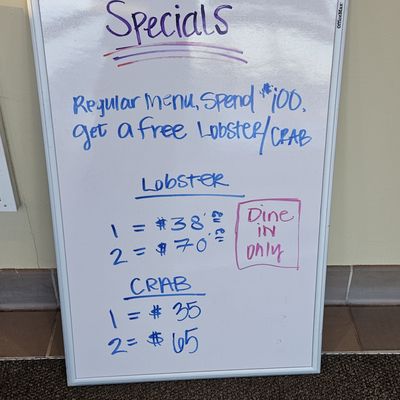 Specials
OfficeMax
Regular Menu, Spend $100.
get a free Lobster/CRAB
LObSTER
1 = $38.00
2 = $70.00
Dine
IN
Only
CRAB
1 = $35
2 = $65